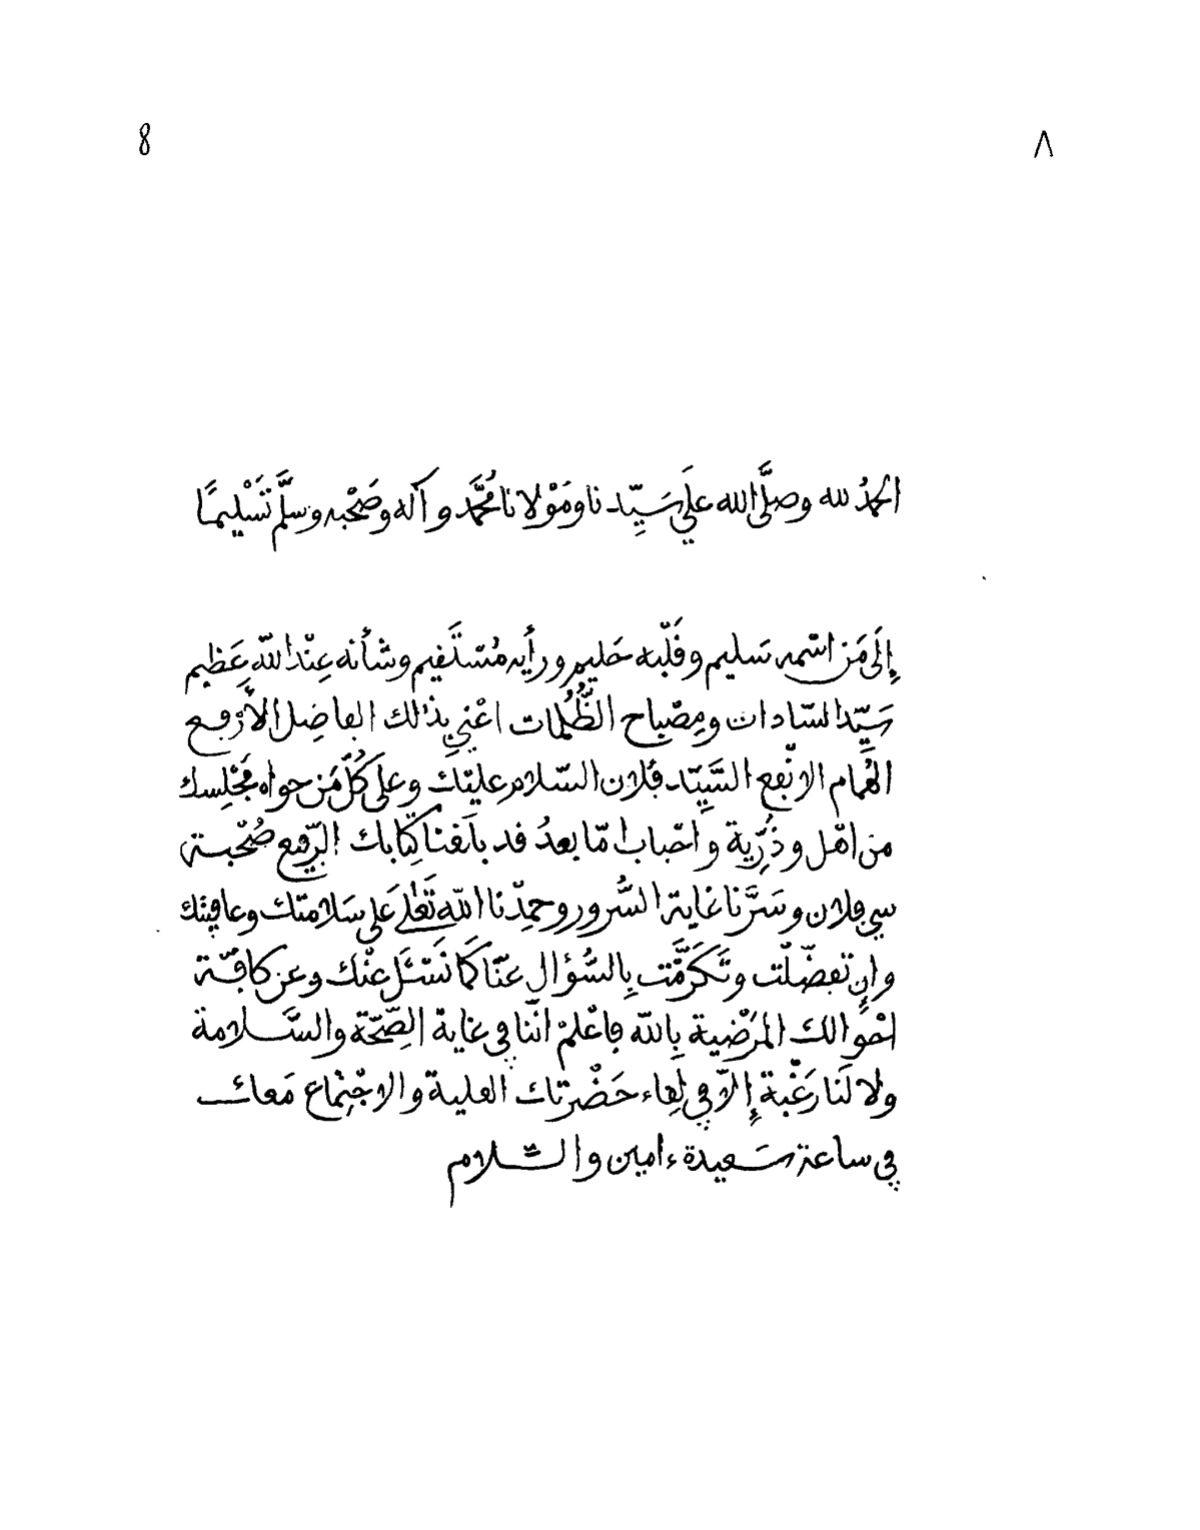 8 ٨
الحمدُ لله وصلَّى الله علَي سَيِّدنا ومَوْلانا مُحَمَّد وآله وصَحْبه وسلَّم تَسْليمًا
إِلَى مَن اسْمه سَليم وقَلْبه حَليم ورأيه مُسْتَقيم وشأنه عِنْد اللّه عَظيم
سَيِّد السّادات ومِصْباح الظُّلُمات اعْني بذلك الفاضِل الأرْفع
الهُمام الانْفع السَّيِّد فلان السّلام عليْك وعلَى كُلّ مَن حواه مَجْلِسك
من اهْل وذُرِّية واحْباب امّا بعدُ قد بلَغنا كِتابك الرّفيع صُحْبة
سي فلان وسَرَّنا غاية السُّرور وحمِدْنا اللّه تَعَلى عَلى سَلامتك وعافيتك
وإن تفضّلْت وتَكَرَّمْت بِالسُّؤال عنّا كَما نَسْئَل عنْك وعن كافّة
احْوالك المَرْضية بِاللّه فاعْلمْ انّنا في غاية الصِّحّة والسَّلامة
ولا لَنا رَغْبة إلاّ في لِقاء حَضْرتك العلية والاجْتِماع مَعك
في ساعة سَعيدة ءامين والسّلام